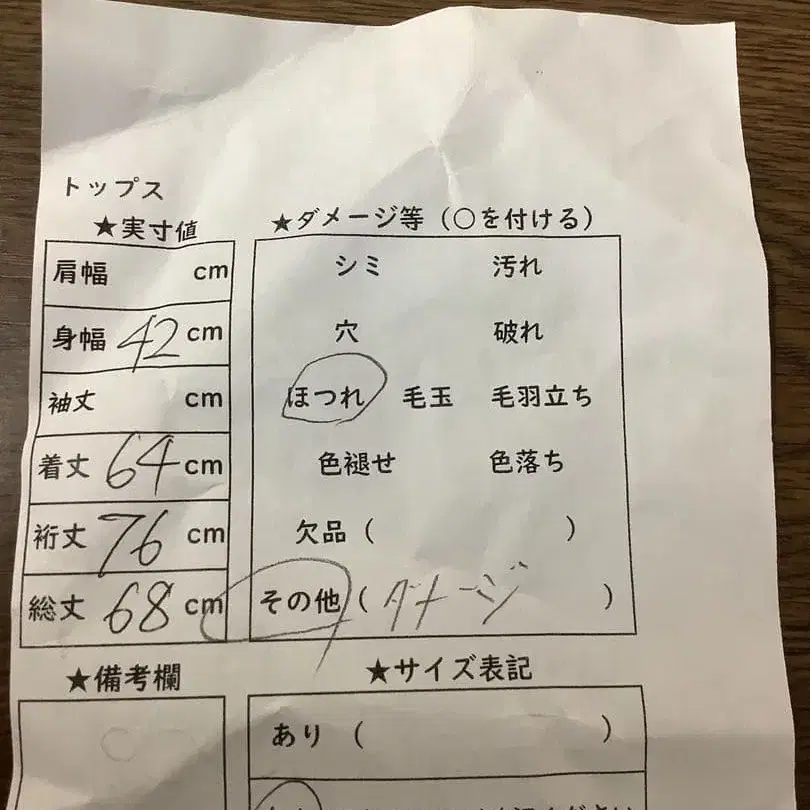 トップス
★実寸値
肩幅 cm
身幅 42 cm
袖丈 cm
着丈 64 cm
裄丈 76 cm
総丈 68 cm
★ダメージ等（○を付ける）
シミ 汚れ
穴 破れ
ほつれ 毛玉 毛羽立ち
色褪せ 色落ち
欠品（ ）
その他（ダメージ）
★備考欄
★サイズ表記
あり（ ）